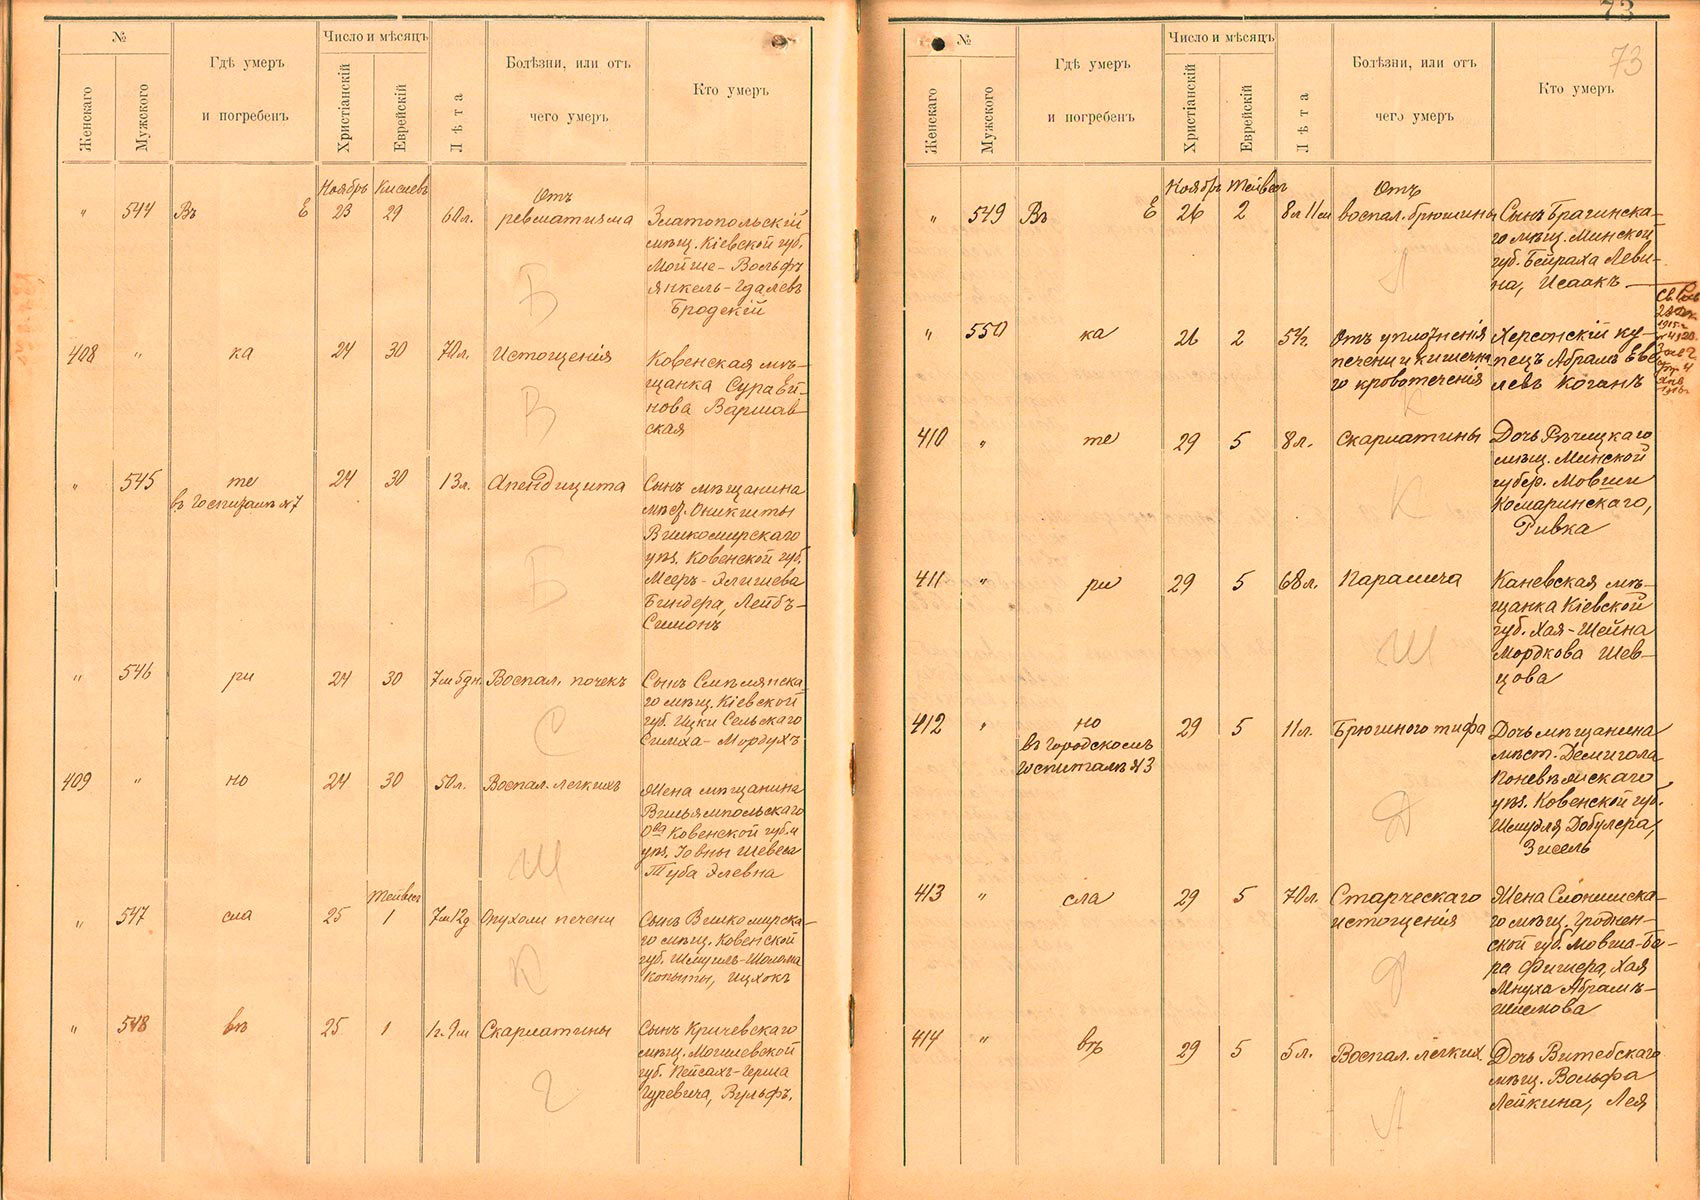 №
Число и мѣсяцъ
Женскаго
Мужского
Гдѣ умеръ
и погребенъ
Христіанскій
Еврейскій
Лѣта
Болѣзни, или отъ
чего умеръ
Кто умеръ
Ноябрь Кислевъ
" 544 Въ Е 23 29 60л. Отъ
ревматизма Златопольскій
мѣщ. Кіевской губ.
Мойше-Вольфъ
Янкель-Гдалевъ
Бродскій
Б
408 " ка 24 30 70л. Истощенія Ковенская мѣ-
щанка Сура Ей-
нова Варшав-
ская
В
" 545 те 24 30 13л. Апендицита Сынъ мѣщанина
въ Госпиталѣ №7 мѣст. Оникшты
Вилкомирскаго
уѣз. Ковенской губ.
Мееръ-Элишева
Биндера, Лейбъ-
Симонъ
Б
" 546 ри 24 30 7м 5дн. Воспал. почекъ Сынъ Смѣлянска-
го мѣщ. Кіевской
губ. Ицки Сельскаго
Симха-Мордухъ
С
409 " но 24 30 50л. Воспал. легкихъ Жена мѣщанина
Вильямпольскаго
О-ва Ковенской губ. и
уѣз. Іовны Шевеса
Туба Элевна
Ш
Тейвесъ
" 547 сла 25 1 7м 12д Опухоли печени Сынъ Вилкомирска-
го мѣщ. Ковенской
губ. Шмуиль-Шолома
Копыты, Ицхокъ
К
" 548 вѣ 25 1 1г. 9м Скарлатины Сынъ Кричевскаго
мѣщ. Могилевской
губ. Пейсахъ-Герша
Гуревича, Вульфъ.
Г
73
73
№
Число и мѣсяцъ
Женскаго
Мужского
Гдѣ умеръ
и погребенъ
Христіанскій
Еврейскій
Лѣта
Болѣзни, или отъ
чего умеръ
Кто умеръ
Ноябрь Тейвесъ
" 549 Въ Е 26 2 8л 11м Отъ
воспал. брюшины Сынъ Брагинска-
го мѣщ. Минской
губ. Бейраха Леви-
на, Исаакъ
Л
" 550 ка 26 2 54г. Отъ уплотненія Херсонскій ку-
печени и кишечна пецъ Абрамъ Еве
го кровотеченія левъ Коганъ
К
410 " те 29 5 8л. Скарлатины Дочь Рѣчицкаго
мѣщ. Минской
губер. Мовши
Комаринскаго,
Ривка
К
411 " ри 29 5 68л. Паралича Каневская мѣ-
щанка Кіевской
губ. Хая-Шейна
Мордкова Шев-
цова
Ш
412 " но 29 5 11л. Брюшного тифа Дочь мѣщанина
въ Городскомъ мѣст. Ремигола
Госпиталѣ №3 Поневѣжскаго
уѣз. Ковенской губ.
Шмудля Добулера,
Зисель
Д
413 " сла 29 5 70л. Старческаго Жена Слонимска-
истощенія го мѣщ. Гроднен-
ской губ. Мовша-Бе-
ра Фишера, Хая
Мнуха Абрамъ-
Шиемова
Ф
414 " вѣ 29 5 5л. Воспал. легких. Дочь Витебскаго
мѣщ. Вольфа
Лейкина, Лея
Л